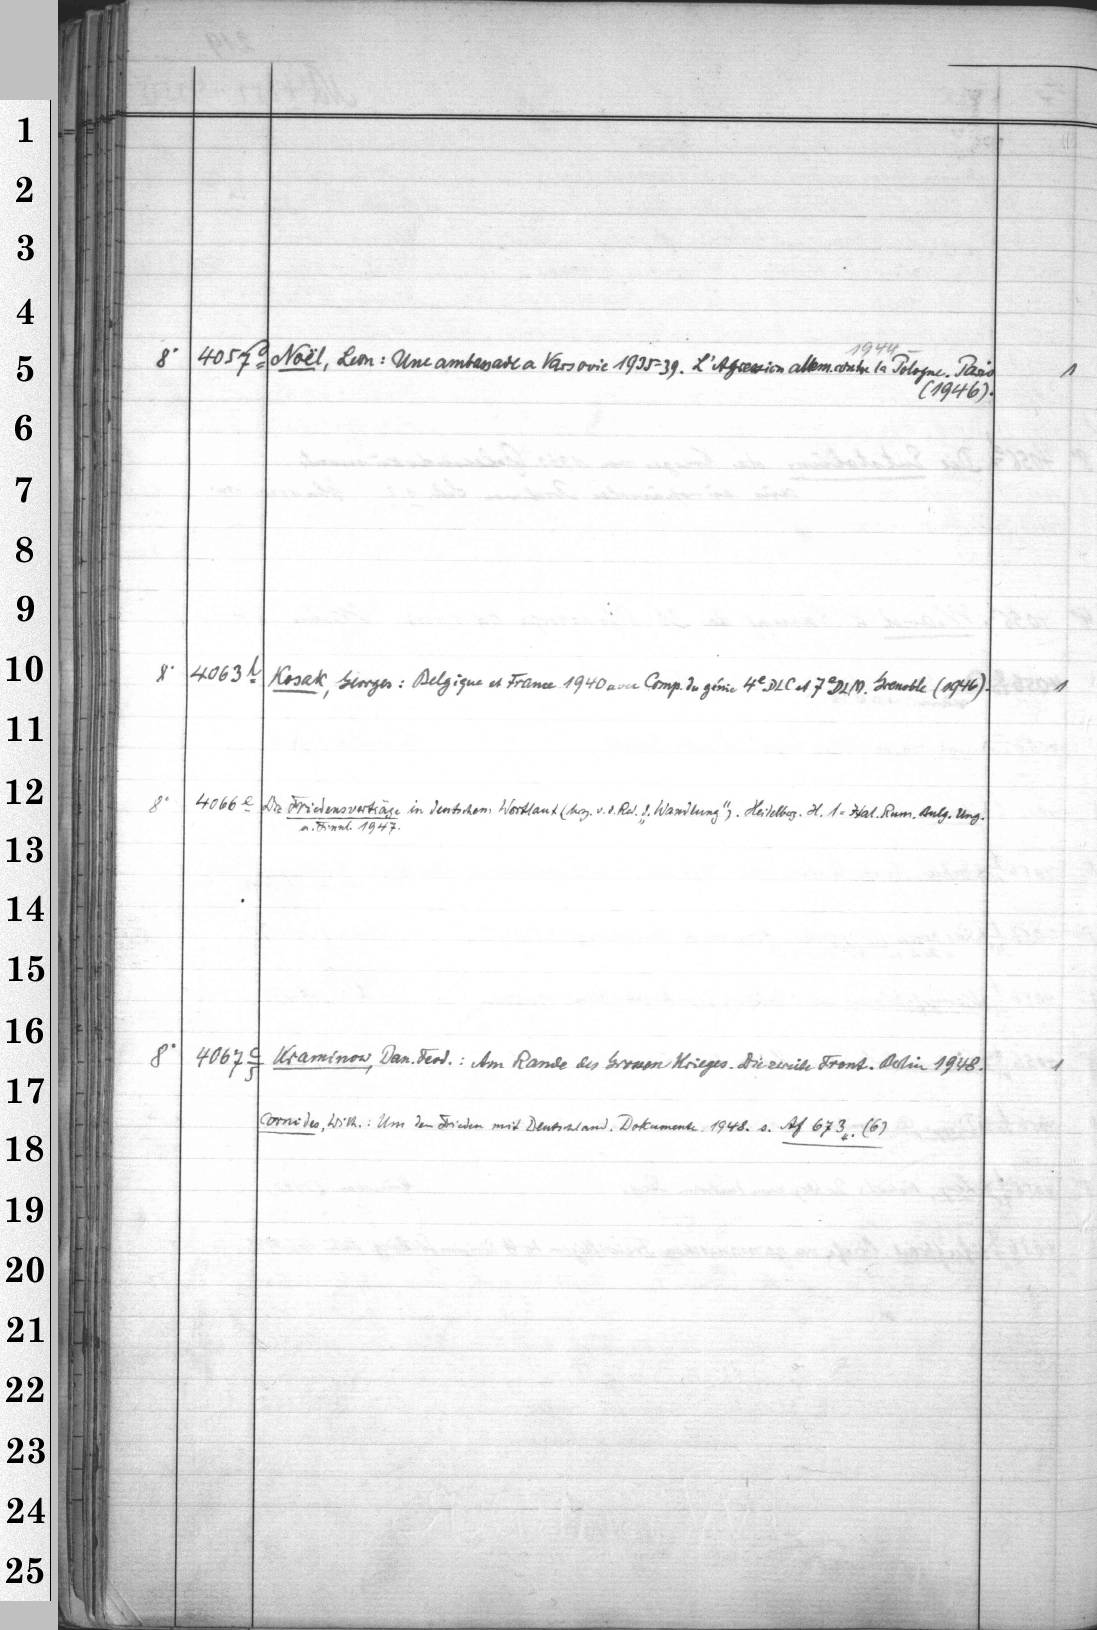 1
2
3
4
1944-
5
8° 4057a Noël, Leon: Une ambassade a Varsovie 1935-39. L'Agression allem. contre la Pologne. Paris 1
(1946).
6
7
8
9
10
8° 4063h Kosak, Georges: Belgique et France 1940 avec Comp. du génie 4e DLC et 7e DLM. Grenoble (1946). 1
11
12
8° 4066e Die Friedensverträge in deutschem Wortlaut (hrg. v. d. Red. d. "Wandlung"). Heidelbg. H. 1 = Ital. Rum. Bulg. Ung.
u. Finnl. 1947.
13
14
15
16
8° 4067c Kraminow, Dan. Ferd.: Am Rande des Grossen Krieges. Die zweite Front. Berlin 1948. 1
5
17
Cornides, Wilh.: Um den Frieden mit Deutschland. Dokumente. 1948. s. Af 673. (6)
18
19
20
21
22
23
24
25